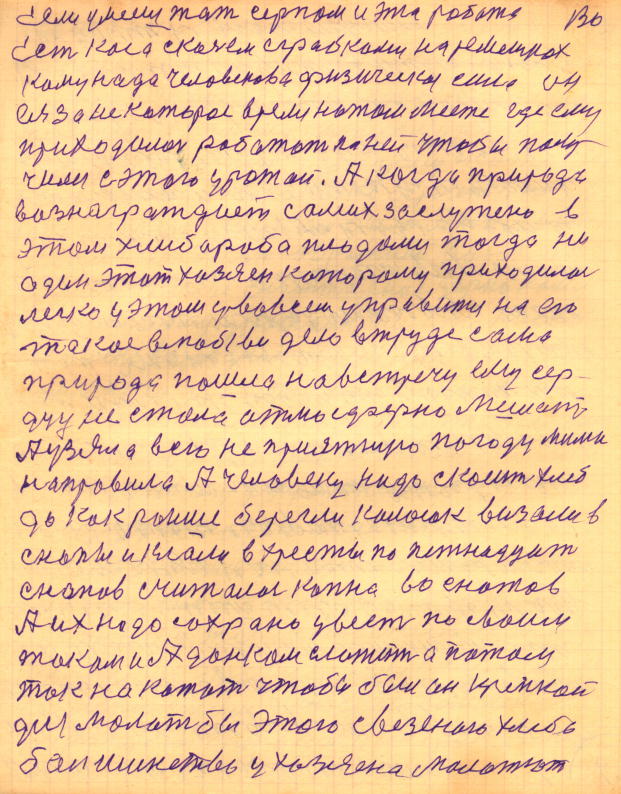 Если умеиш жат серпом и эта работа 130
Ест коса с крючем с грабками на ремешках
кому нада человекова физическая сила он
некоторое время на том месте где ему
приходилос работат на ней чтобы полу
чили с этого урожай. А когда природа
вознаграждает самих заслужено в
этом хлибароба плодами тогда не
один этот хозяен которому приходилос
легко у этом во всем управит на его
такое в любви дело в труде сама
природа пошла на встречу ему сер-
дцу не стала атмосферно мешат
А узяла всю не приятную погоду мимо
направила А человеку надо скосит хлеб
да как раньше берегли колосок вязали в
снопы и клали в хресты по петнадцат
снапов считалос копна 60 снопов
А их надо сохрано увест по своим
токам и А донком сложит а потом
ток накатат чтобы был он крепкой
для молотбы этого свезеного хлеба
балшинство у хозяена молотят